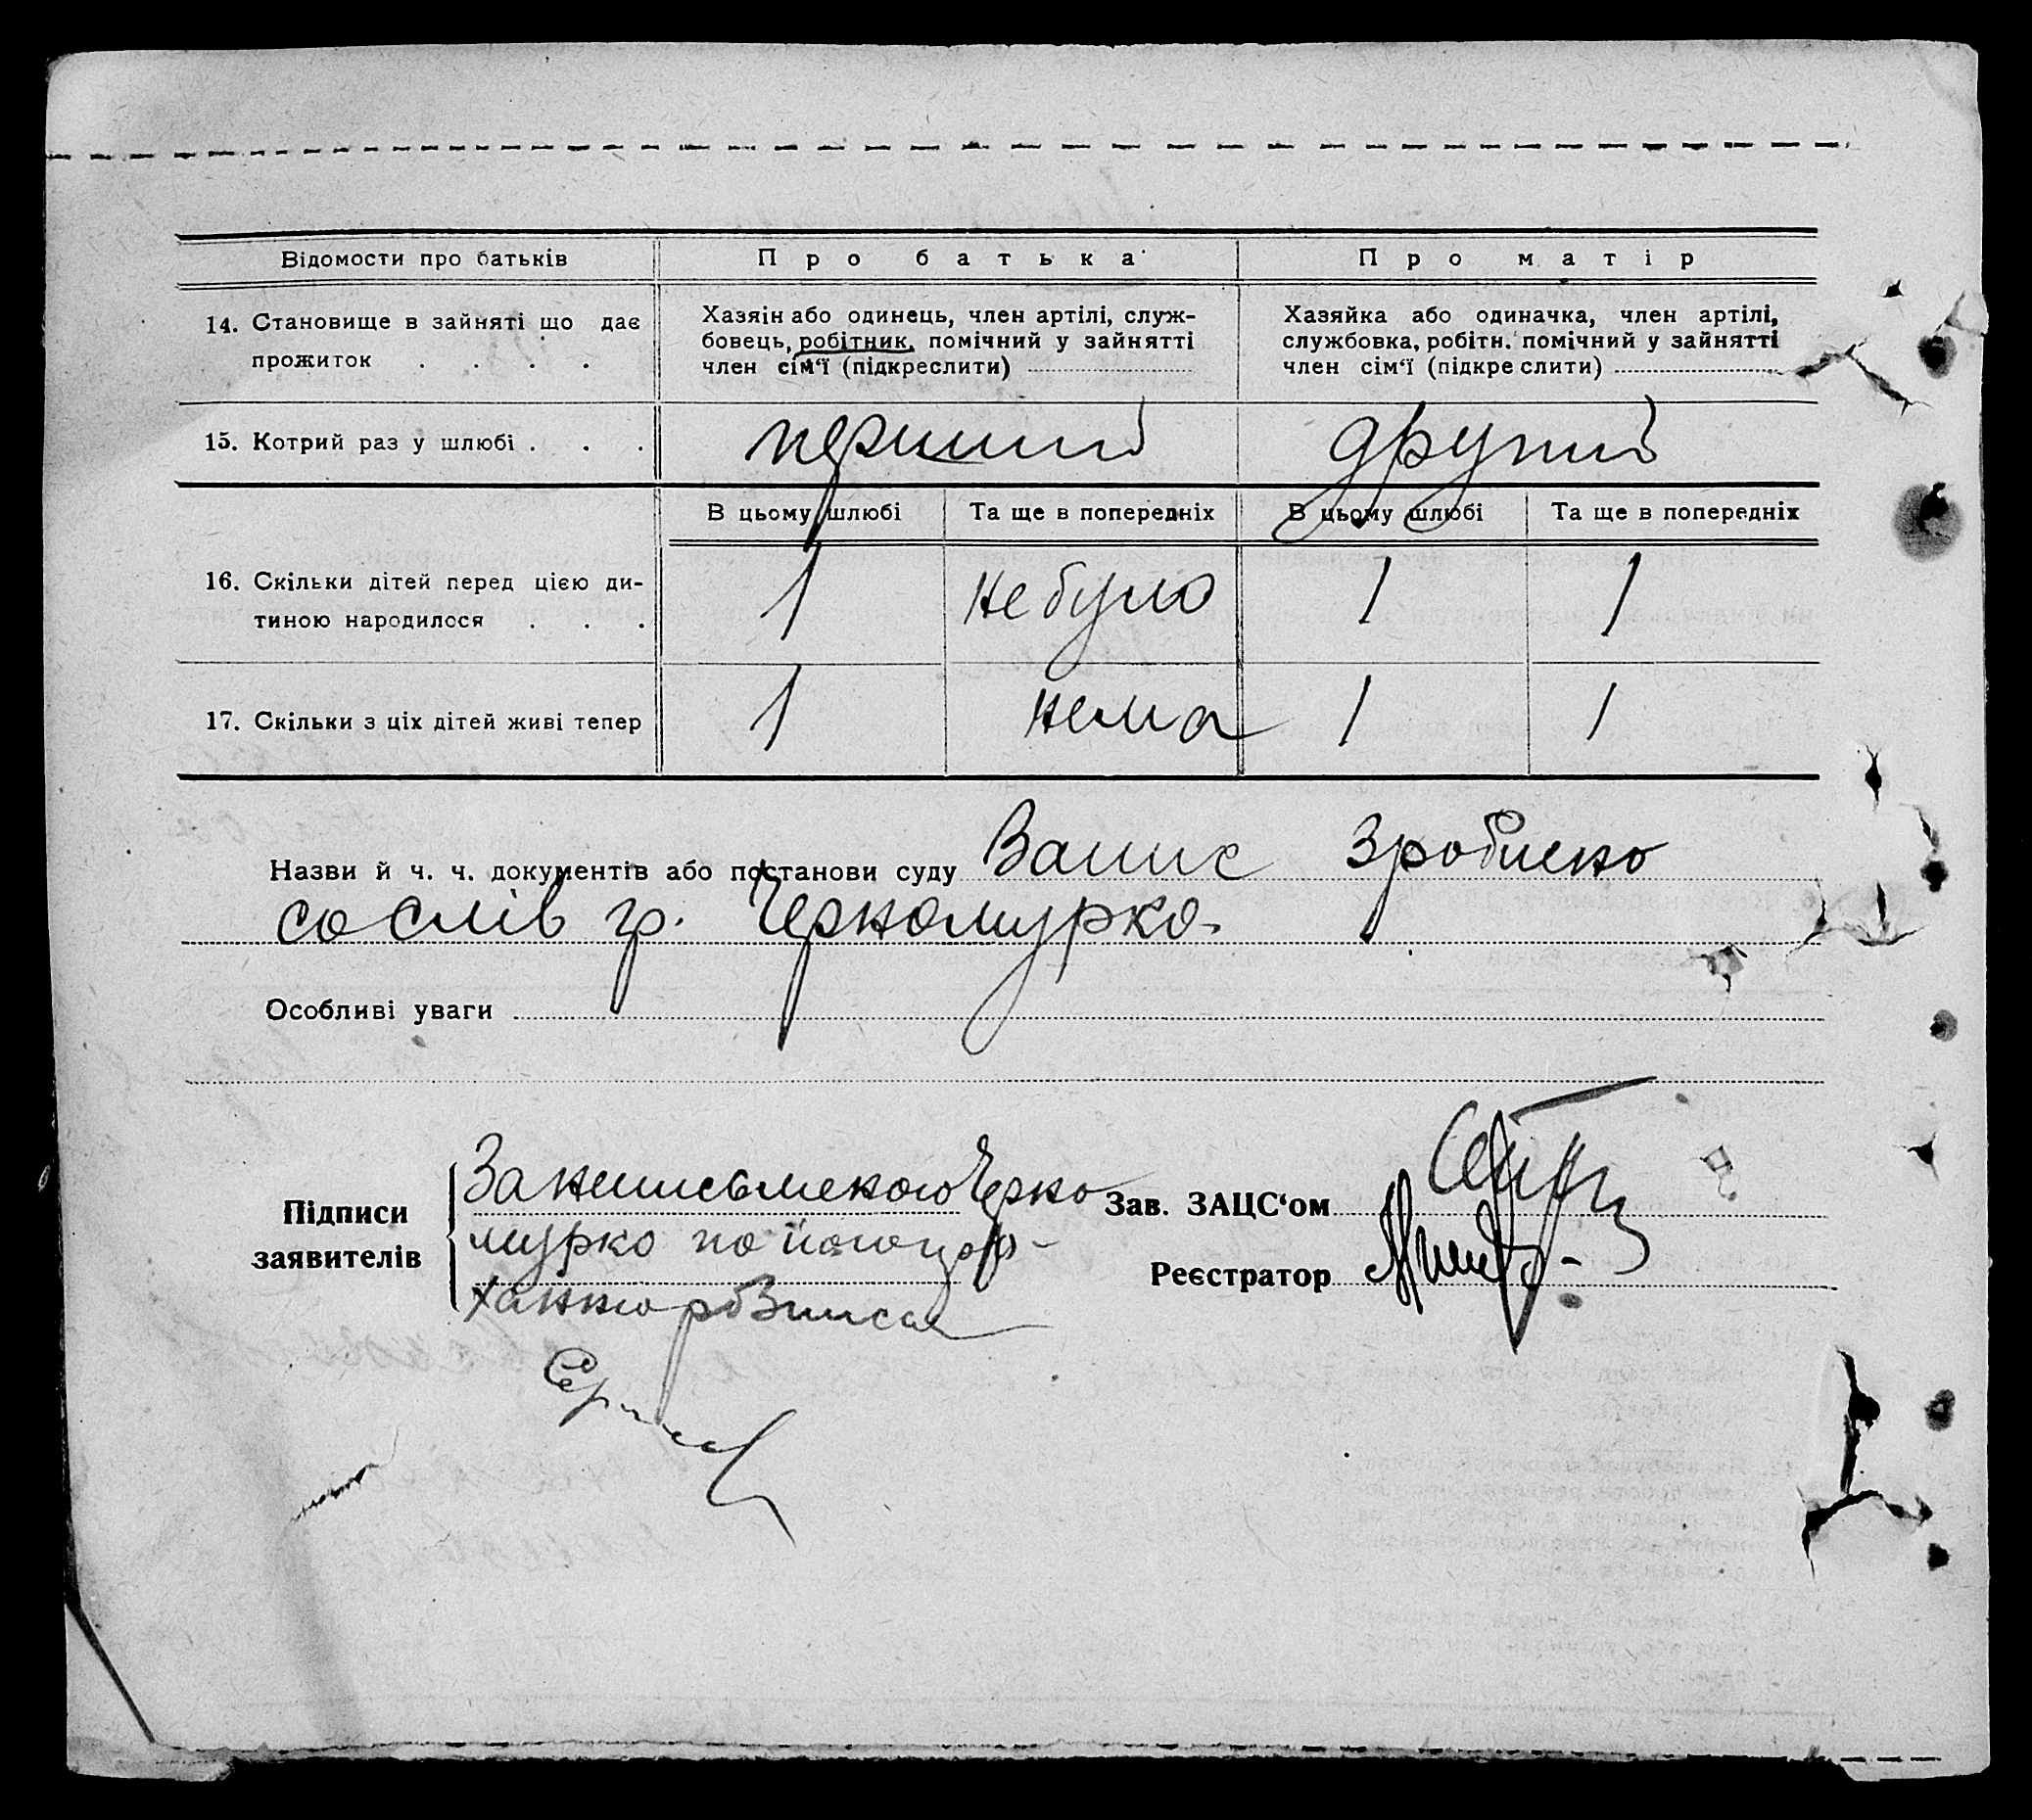 Відомости про батьків Про батька Про матір
14. Становище в зайняті що дає прожиток . . . .
Хазяін або одинець, член артілі, служ-
бовець, робітник, помічний у зайнятті
член сім'ї (підкреслити)
Хазяйка або одиначка, член артілі,
службовка, робітн. помічний у зайнятті
член сім'ї (підкреслити)
15. Котрий раз у шлюбі . . . перший другий
В цьому шлюбі Та ще в попередніх В цьому шлюбі Та ще в попередніх
16. Скільки дітей перед цією ди-
тиною народилося . . . 1 не було 1 1
17. Скільки з ціх дітей живі тепер 1 нема 1 1
Назви й ч. ч. документів або постанови суду Запис зроблено
со слів гр. Черномурко.
Особливі уваги
Підписи
заявителів
За неписьменого Черно
мурко по його
Зав. ЗАЦС'ом
Реєстратор